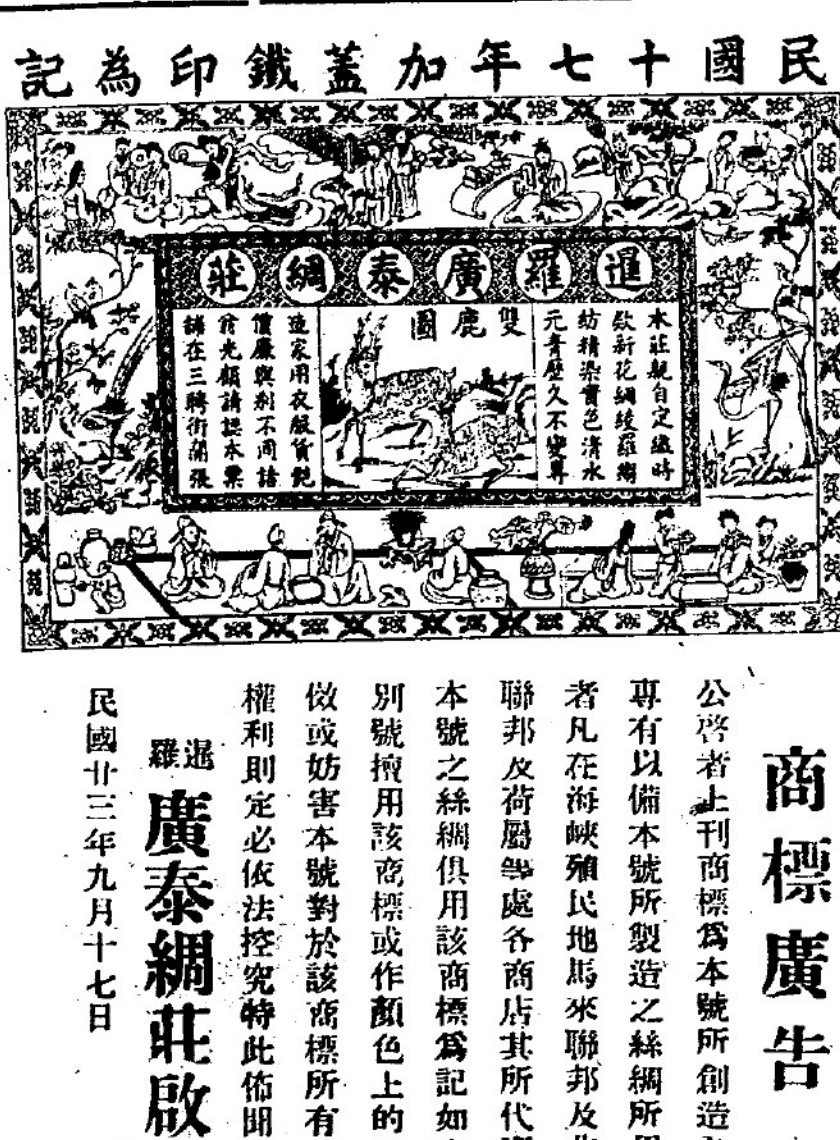 民國十七年加蓋鐵印為記
暹羅廣泰綢莊
雙鹿圖
本莊親自定織時
欵新花綢綾羅縐
紡精染實色清水
元青歷久不變專
造家用衣服貨艶
價廉與別不同諸
君光顧請認本票
舖在三聘街開張
商標廣告
公啓者上刊商標爲本號所創造
專有以備本號所製造之絲綢所用
者凡在海峽殖民地馬來聯邦及
聯邦及荷屬等處各商店其所代
本號之絲綢俱用該商標爲記如
別號擅用該商標或作顏色上的
倣或妨害本號對於該商標所有
權利則定必依法控究特此佈聞
暹羅
廣泰綢莊啟
民國廿三年九月十七日